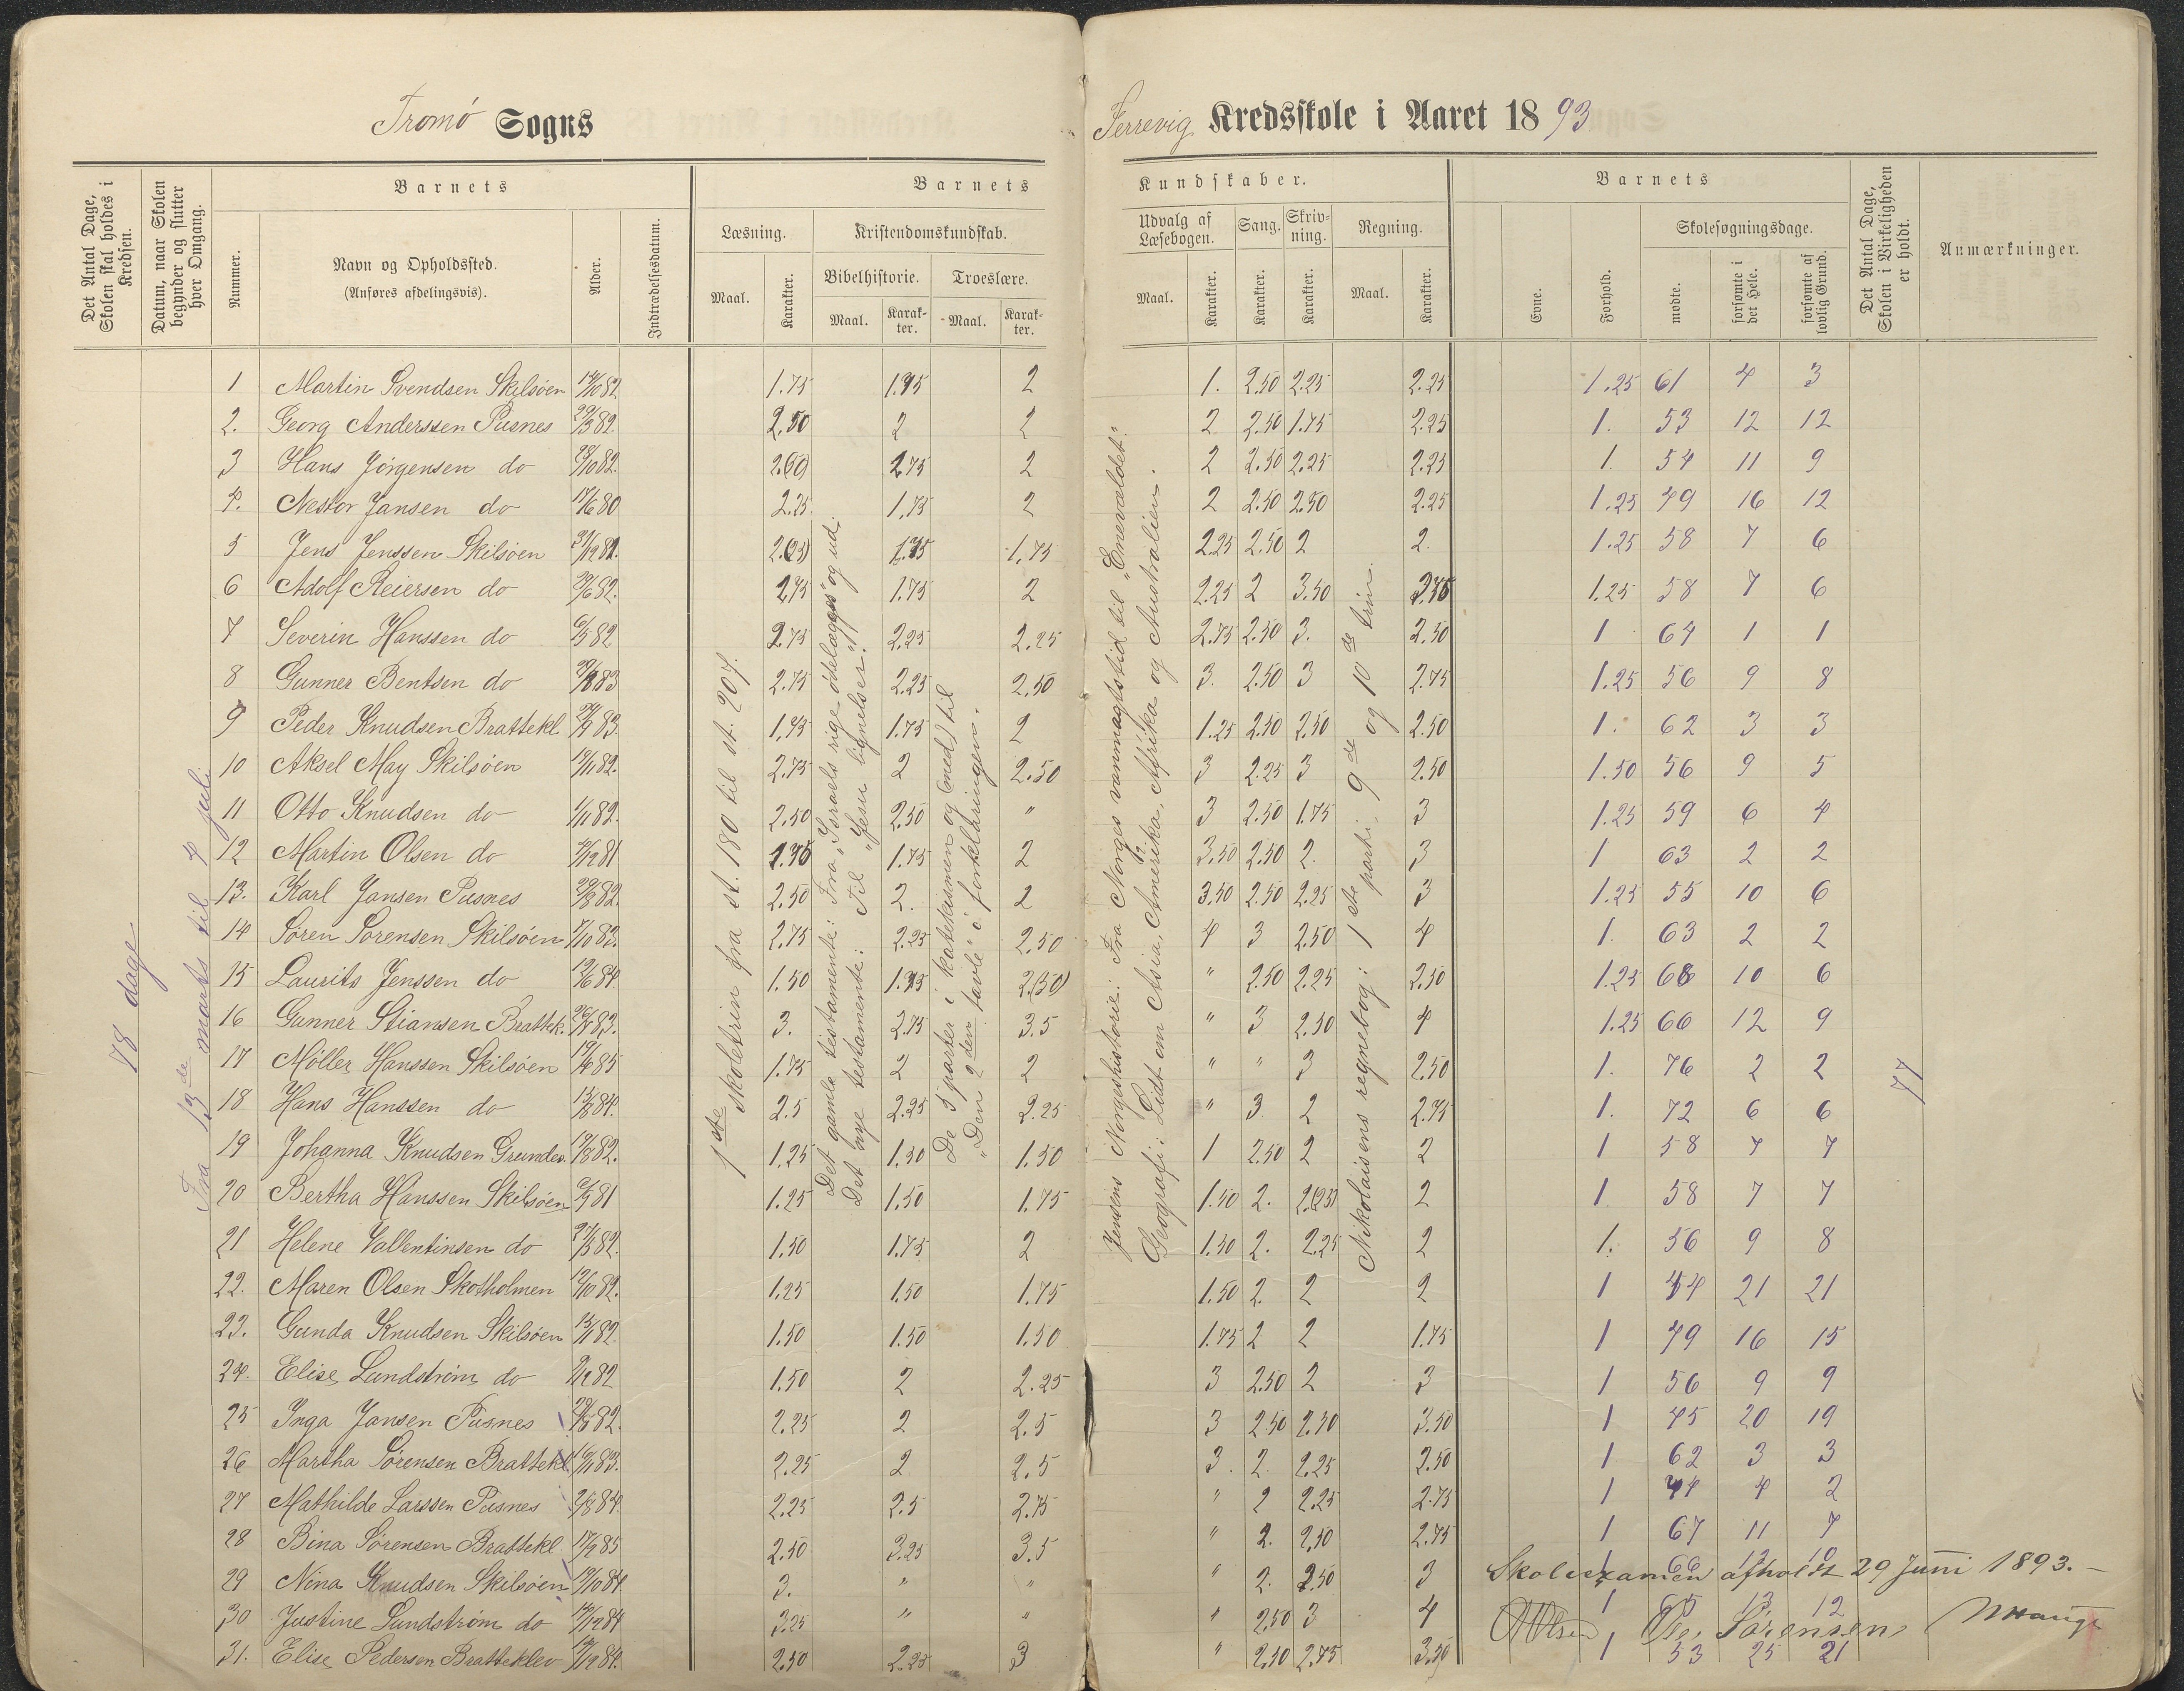 Tromø Sogns
Færrevig Kredsskole i Aaret 1893
Det Antal Dage, Skolen skal holdes i Kredsen.
Datum, naar Skolen begynder og slutter hver Omgang.
Barnets
Nummer.
Navn og Opholdssted.
(Anføres afdelingsvis).
Alder.
Indtrædelsesdatum.
Barnets
Læsning.
Maal.
Karakter.
Kristendomskundskab.
Bibelhistorie.
Maal.
Karakter.
Troeslære.
Maal.
Karakter.
Kundskaber.
Udvalg af Læsebogen.
Maal.
Karakter.
Sang.
Karakter.
Skrivning.
Karakter.
Regning.
Maal.
Karakter.
Barnets
Evne.
Forhold.
Skolesøgningsdage.
mødte.
forsømte i det Hele.
forsømte af lovlig Grund.
Det Antal Dage, Skolen i Virkeligheden er holdt.
Anmærkninger.
78 dage
Fra 13de marts til 4 juli
1ste skoletrin fra st. 180 til st. 207.
Det gamle testamente: Fra "Israels rige ødelægges" og ud.
Det nye testamente: Til "Jesu lignelser."
De 3 parter i katekismen og (med) til
"Den 2den tavle" i forklaringen.
Jensens Norgeshistorie: Fra Norges vanmagtstid til "Enevældet."
Geografi: Lidt om Asia, Amerika, Afrika og Australien.
Nikolaisens regnebog: 1ste parti, 9de og 10de trin.
77
1 Martin Svendsen Skilsøen 1.75 1.75 2 1. 2.50 2.25 2.25 1.25 61 4 3
2. Georg Anderssen Pusnes 2.50 2 2 2 2.50 1.75 2.25 1. 53 12 12
3 Hans Jørgensen do 2 2 2.50 2.25 2.25 1. 54 11 9
4. Nestor Jansen do 17/6 80 2.25 1.75 2 2 2.50 2.50 2.25 1.25 49 16 12
5 Jens Jenssen Skilsøen 1.75 2.25 2.50 2 2. 1.25 58 7 6
6 Adolf Reiersen do 2.75 1.75 2 2.25 2 3.50 1.25 58 7 6
7 Severin Hanssen do 2.75 2.25 2.25 2.75 2.50 3. 2.50 1 64 1 1
8 Gunner Bentsen do 2.75 2.25 2.50 3. 2.50 3 2.75 1.25 56 9 8
9 Peder Knudsen Brattekl. 1.75 1.75 2 1.25 2.50 2.50 2.50 1. 62 3 3
10 Aksel May Skilsøen 2.75 2 2.50 3 2.25 3 2.50 1.50 56 9 5
11 Otto Knudsen do 2.50 2.50 " 3 2.50 1.75 3 1.25 59 6 4
12 Martin Olsen do 1.75 2 3.50 2.50 2. 3 1 63 2 2
13. Karl Jansen Pusnes 2.50 2. 2 3.50 2.50 2.25 3 1.25 55 10 6
14 Søren Sørensen Skilsøen 2.75 2.25 2.50 4 3 2.50 4 1. 63 2 2
15 Laurits Jenssen do 1.50 2(50) " 2.50 2.25 2.50 1.25 68 10 6
16 Gunner Stiansen Brattek. 3. 2.75 3.5 " 3 2.50 4 1.25 66 12 9
17 Møller Hanssen Skilsøen 1.75 2 2 " " 3 2.50 1. 76 2 2
18 Hans Hanssen do 2.5 2.25 2.25 " 3. 2 2.75 1. 72 6 6
19 Johanna Knudsen Grundev. 1.25 1.50 1.50 1 2.50 2 2 1 58 7 7
20 Bertha Hanssen Skilsøen 1.25 1.50 1.75 1.50 2. 2(25) 2 1 58 7 7
21 Helene Vallentinsen do 1.50 1.75 2 1.50 2. 2.25 2 1. 56 9 8
22. Maren Olsen Skotholmen 1.25 1.50 1.75 1.50 2. 2 2 1 44 21 21
23. Gunda Knudsen Skilsøen 1.50 1.50 1.50 1.75 2 2 1.75 1 49 16 15
24. Elise Lundstrøm do 1.50 2 2.25 3 2.50 2 3 1 56 9 9
25 Inga Jansen Pusnes 2.25 2 2.5 3 2.50 2.50 3.50 1 45 20 19
26 Martha Sørensen Brattekl. 2.25 2. 2.5 3. 2. 2.25 2.50 1 62 3 3
27 Mathilde Larssen Pusnes 2.25 2.5 2.75 " 2 2.25 2.75 1 4 2
28 Bina Sørensen Brattekl. 2.50 3.25 3.5 " 2. 2.50 2.75 1 67 11 7
29 Nina Knudsen Skilsøen 3. " " " 2. 2.50 3 1 66 12 10
30 Justine Lundstrøm do 3.25 " " " 2.50 3 4 1 65 13 12
31. Elise Pedersen Bratteklev 2.50 2.25 3 " 2.50 2.75 3.50 1 53 25 21
Skoleexamen afholdt 29 Juni 1893.
Olsen Ole Sørensen Hauge